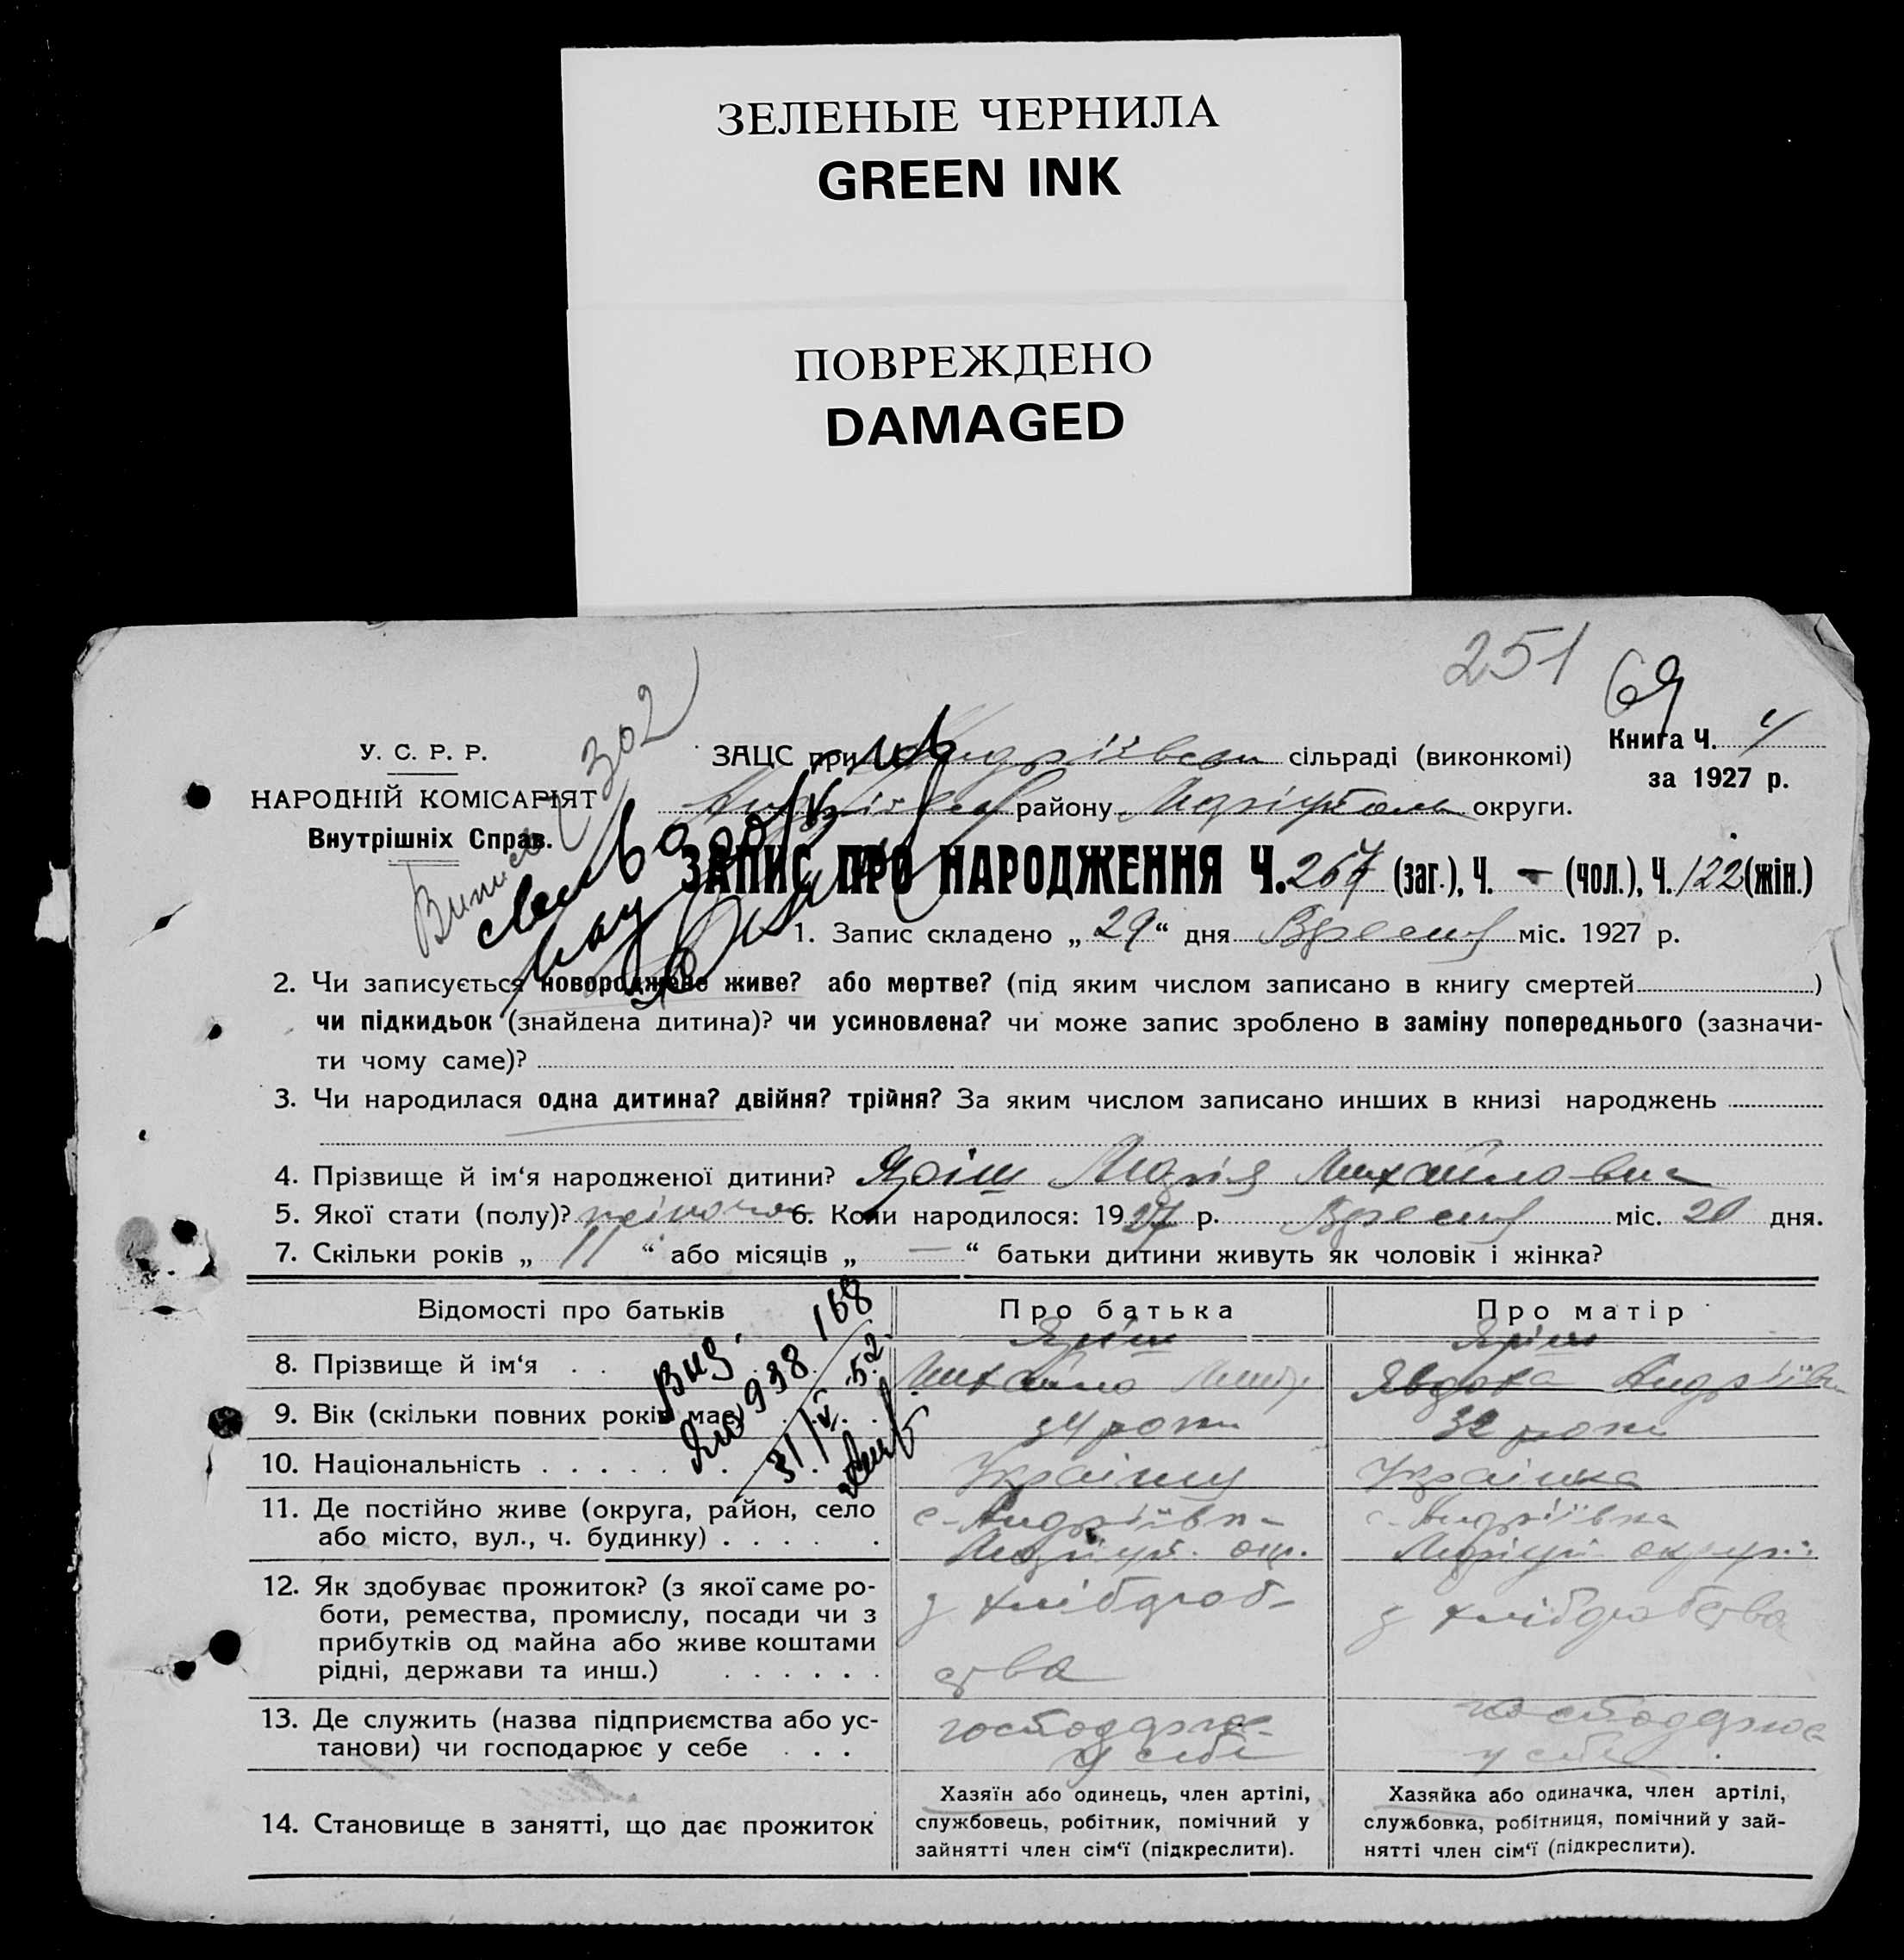 ЗЕЛЕНЫЕ ЧЕРНИЛА
GREEN INK
ПОВРЕЖДЕНО
DAMAGED
251
69
302
У. С. Р. Р.
НАРОДНІЙ КОМІСАРІЯТ
Внутрішніх Справ.
ЗАЦС при Андріївськ сільраді (виконкомі)
Андріївськ району Маріупольськ округи.
Книга Ч. 4
за 1927 р.
ЗАПИС ПРО НАРОДЖЕННЯ Ч. 267 (заг.), Ч. - (чол.), Ч. 122 (жін.)
1. Запис складено „ 29 “ дня Вресня міс. 1927 р.
2. Чи записується новороджене живе? або мертве? (під яким числом записано в книгу смертей )
чи підкидьок (знайдена дитина)? чи усиновлена? чи може запис зроблено в заміну попереднього (зазначи-
ти чому саме)?
3. Чи народилася одна дитина? двійня? трійня? За яким числом записано инших в книзі народжень
4. Прізвище й ім‘я народженої дитини? Яріш Марія Михайловна
5. Якої стати (полу)? жіночої 6. Коли народилося: 1927 р. Вресня міс. 20 дня.
7. Скільки років „ 11 “ або місяців „ — “ батьки дитини живуть як чоловік і жінка?
Відомості про батьків
Про батька
Про матір
8. Прізвище й ім‘я . .
Яріш
Михайло
Яріш
Явдоха Андріївн
9. Вік (скільки повних років має)
34 роки
32 роки
10. Національність . . . . .
Українц
Українка
11. Де постійно живе (округа, район, село
або місто, вул., ч. будинку) . . . . .
с. Андріївка
Маріуп. окр.
с. Андріївка
Маріуп. округи
12. Як здобуває прожиток? (з якої саме ро-
боти, ремества, промислу, посади чи з
прибутків од майна або живе коштами
рідні, держави та инш.) . . . . . .
з хлібороб-
ства
з хліборобства
13. Де служить (назва підприємства або ус-
танови) чи господарює у себе . . .
господарює
у себе
господарює
у себе
14. Становище в занятті, що дає прожиток
Хазяїн або одинець, член артілі,
службовець, робітник, помічний у
зайнятті член сім‘ї (підкреслити).
Хазяйка або одиначка, член артілі,
службовка, робітниця, помічний у зай-
нятті член сім‘ї (підкреслити).
Вид.
938 168
31/V 52